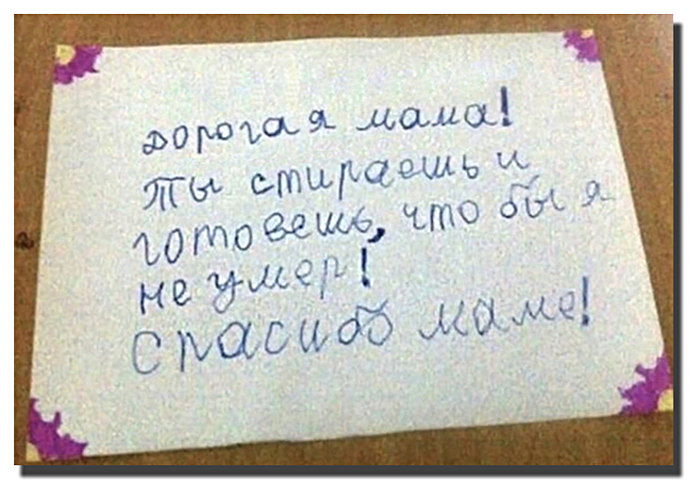 дорогая мама!
Ты стираешь и
готовешь, что бы я
не умер!
Спасибо маме!